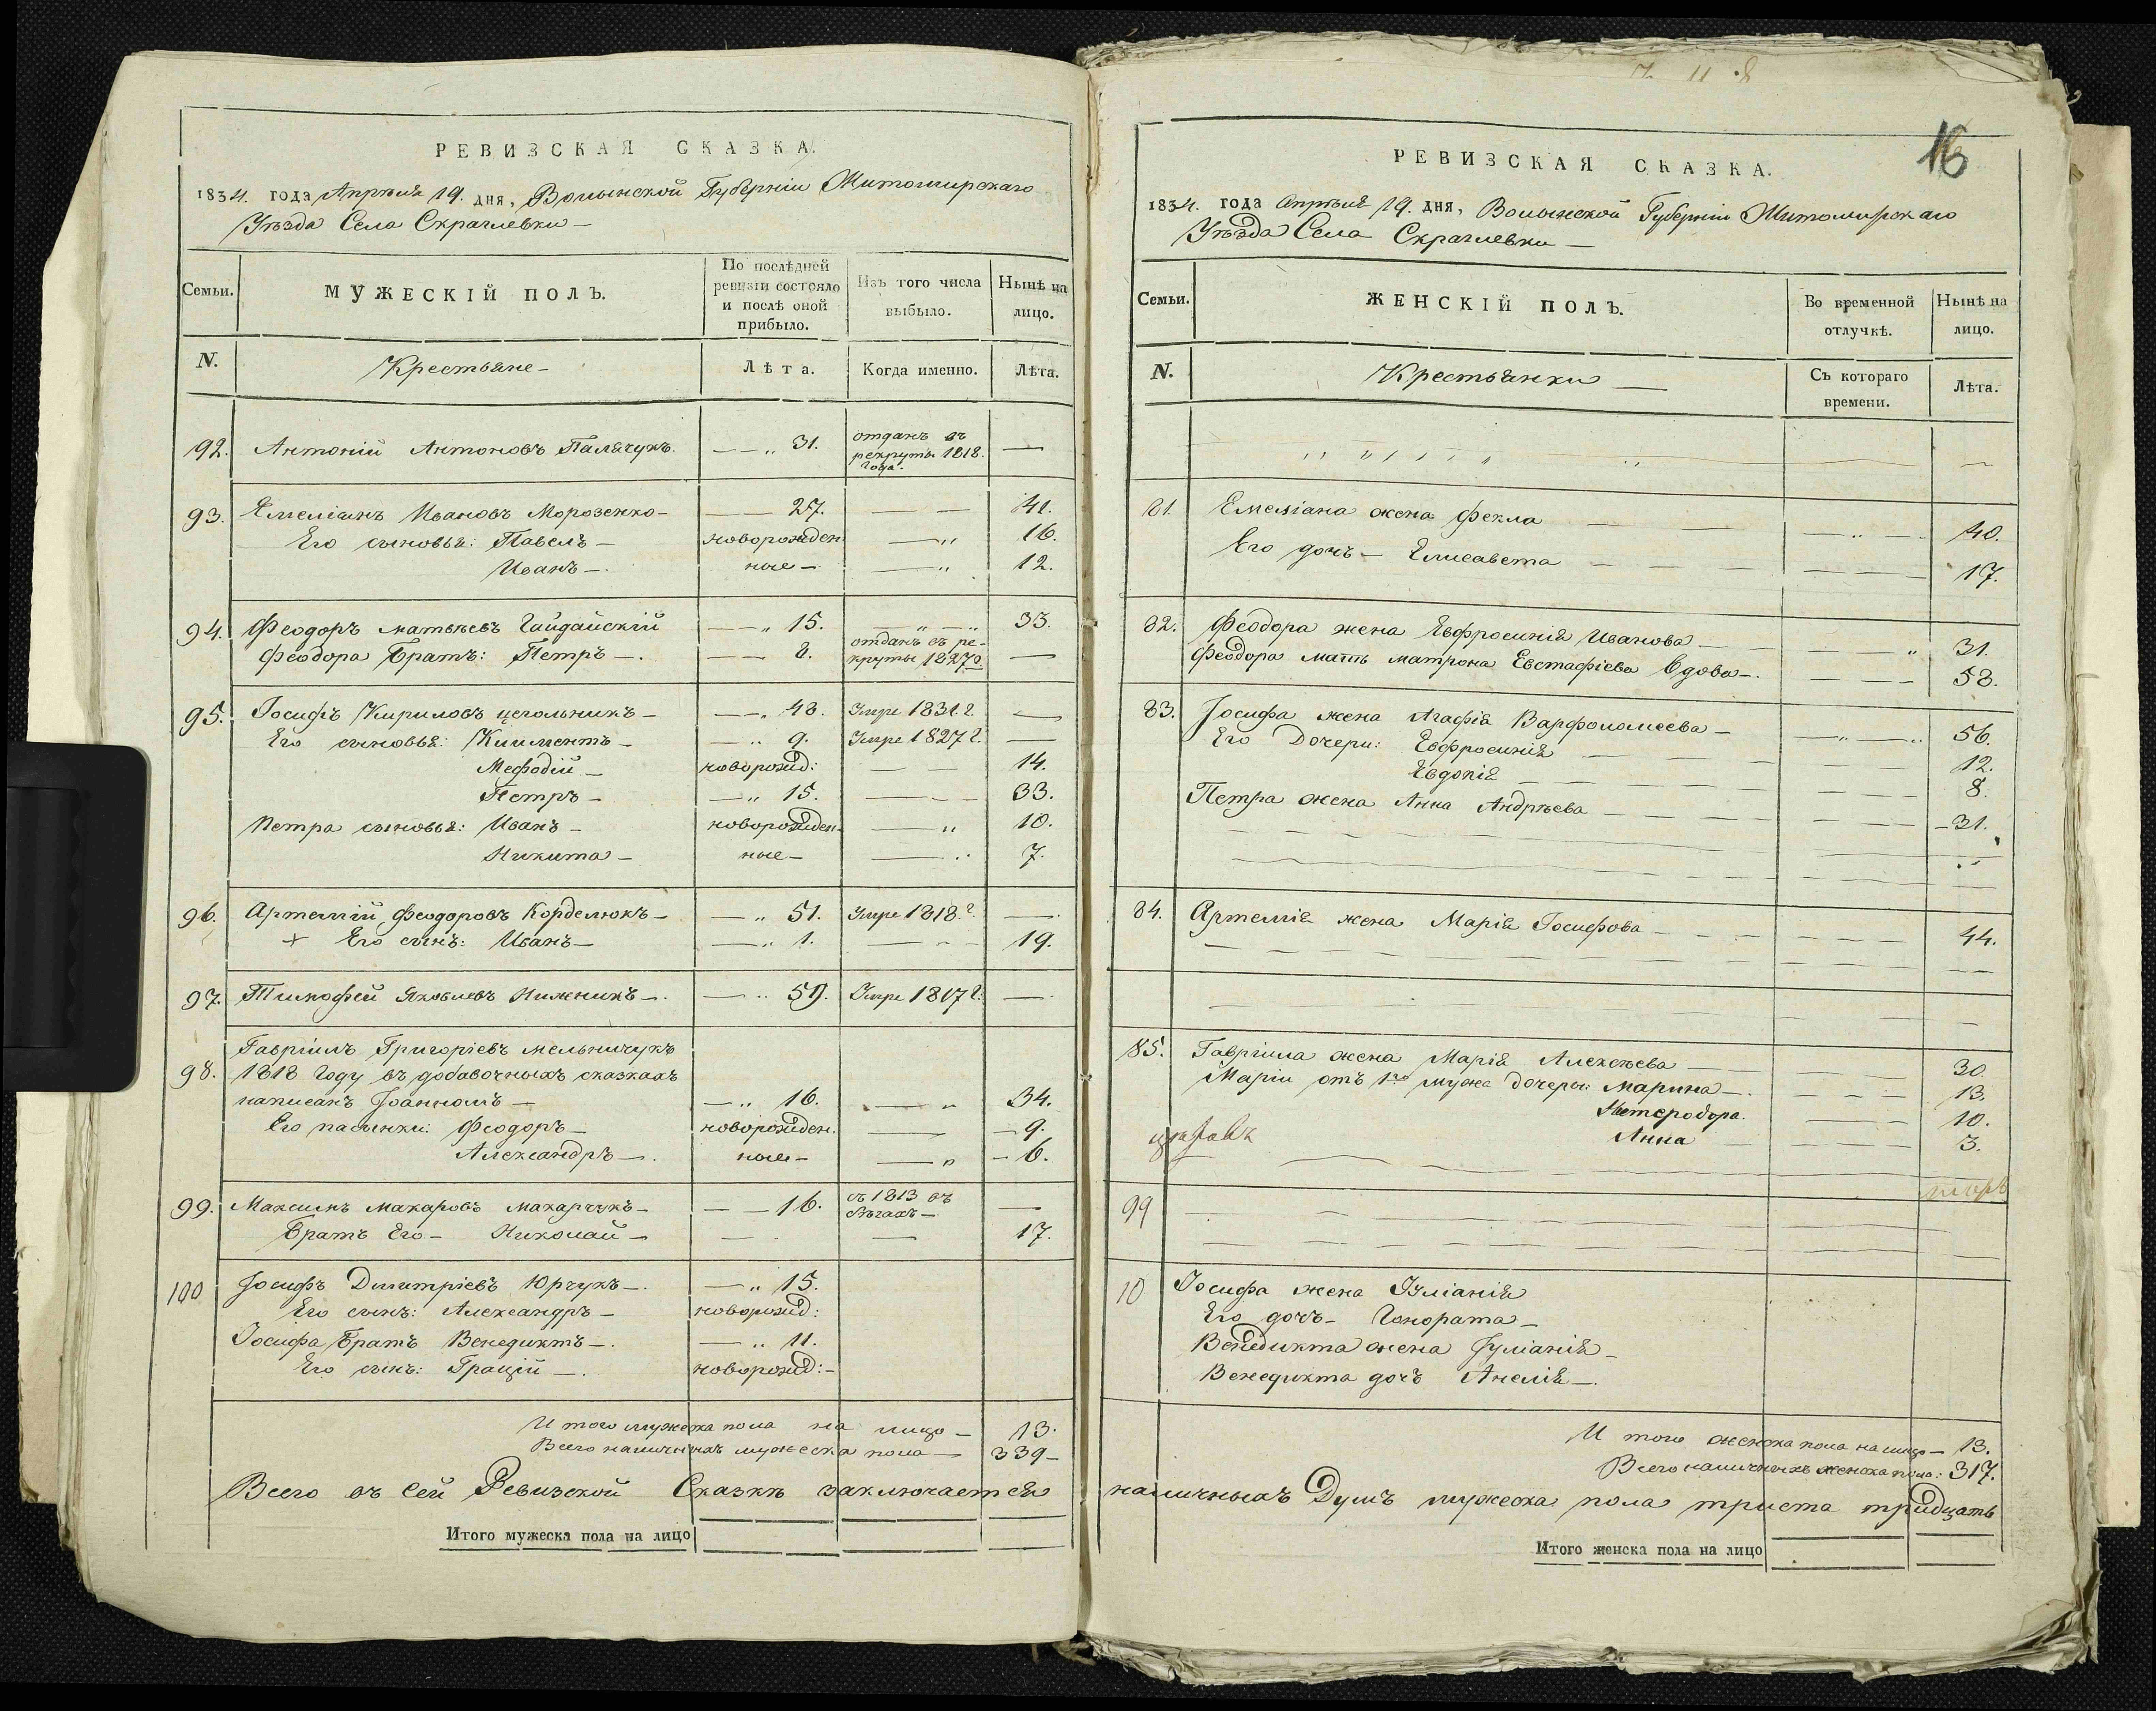 РЕВИЗСКАЯ СКАЗКА.
1834. года Апрѣля 19. дня, Волынской Губерніи Житомирскаго
Уѣзда Села Скраглевки —
Семьи.
МУЖЕСКІЙ ПОЛЪ.
По послѣдней ревизіи состояло и послѣ оной прибыло.
Изъ того числа выбыло.
Нынѣ на лицо.
N.
Крестьяне —
Лѣта.
Когда именно.
Лѣта.
92. Антоній Антоновъ Палячукъ. — — „ 31. отданъ въ рекруты 1818. года. —
93. Емеліанъ Ивановъ Морозенко — — — 27. — — 41.
Его сыновья: Павелъ — новорожден — „ 16.
Иванъ —. ные — — „ 12.
94. Феодоръ матвѣевъ Гайдайскій — „ 15. „ — „ 33.
Феодора Братъ: Петръ —. — — 8. отданъ въ рекруты 1827 —
95. Іосифъ Кириловъ цегольникъ — — „ 48. Умре 1831. г. —
Его сыновья: Климентъ — — „ 9. Умре 1827 г. —
Мефодій — новорожд: — — 14.
Петръ — — „ 15. — — 33.
Петра сыновья: Иванъ — новорожден — „ 10.
Никита — ные — — „ 7.
96. Артемій Феодоровъ Корделюкъ — — „ 51. Умре 1818. г. —.
+ Его сынъ: Иванъ — — „ 1. — — 19.
97. Тимофей Яковлевъ Нижникъ —. — „ 59. Умре 1817 г. —.
98. Гавріилъ Григоріевъ мельничукъ
1818 Году въ добавочныхъ сказкахъ
написанъ Іоанномъ — — „ 16. — „ 34.
Его пасынки: Феодоръ — новорожден. — — 9.
Александръ —. ные — — „ — 6.
99. Максимъ макаровъ макарчукъ — — — 16. съ 1813 въ бѣгахъ — —
Братъ Его — Николай — — — 17.
100 Іосифъ Димитріевъ Юрчукъ —. — „ 15.
Его сынъ: Александръ — новорожд:
Іосифа Братъ Венедиктъ —. — „ 11.
Его сынъ: Грацій —. новорожд: —
И того мужеска пола на лицо — 13.
Всего наличныхъ мужеска пола — 339 —
Всего въ сей Ревизской Сказкѣ заключается
Итого мужеска пола на лицо
16
РЕВИЗСКАЯ СКАЗКА.
1834. года Апрѣля 19. дня, Волынской Губерніи Житомирскаго
Уѣзда Села Скраглевки —
Семьи.
ЖЕНСКІЙ ПОЛЪ.
Во временной отлучкѣ.
Нынѣ на лицо.
N.
Крестьянки —
Съ котораго времени.
Лѣта.
81. Емеліана жена Фекла — — — „ — 40.
Его дочь — Елисавета — — — — — 17.
82. Феодора жена Евфросинія Иванова — — — „ 31.
Феодора мать матрона Евстафіева Вдова —. — — — 58.
83. Іосифа жена Агафія Варфоломеева — — „ — „ 56.
Его Дочери: Евфросинія — — — 12.
Евдокія — — — 8.
Петра жена Анна Андрѣева — — — — 31.
84. Артемія жена Марія Іосифова — — — — — — 44.
85. Гавріила жена Марія Алексѣева — — — 30.
Маріи отъ 1го мужа дочери: Марина —. — — — 13.
Метеродора. — — 10.
Анна — — — 3.
99
10 Іосифа жена Іуліанія
Его дочь — Гонората —
Венедикта жена Іуліанія —
Венедикта дочь Анелія —.
И того женска пола на лицо — 13.
Всего наличныхъ женска пола: 317.
наличныхъ Душъ мужеска пола триста тридцать
Итого женска пола на лицо